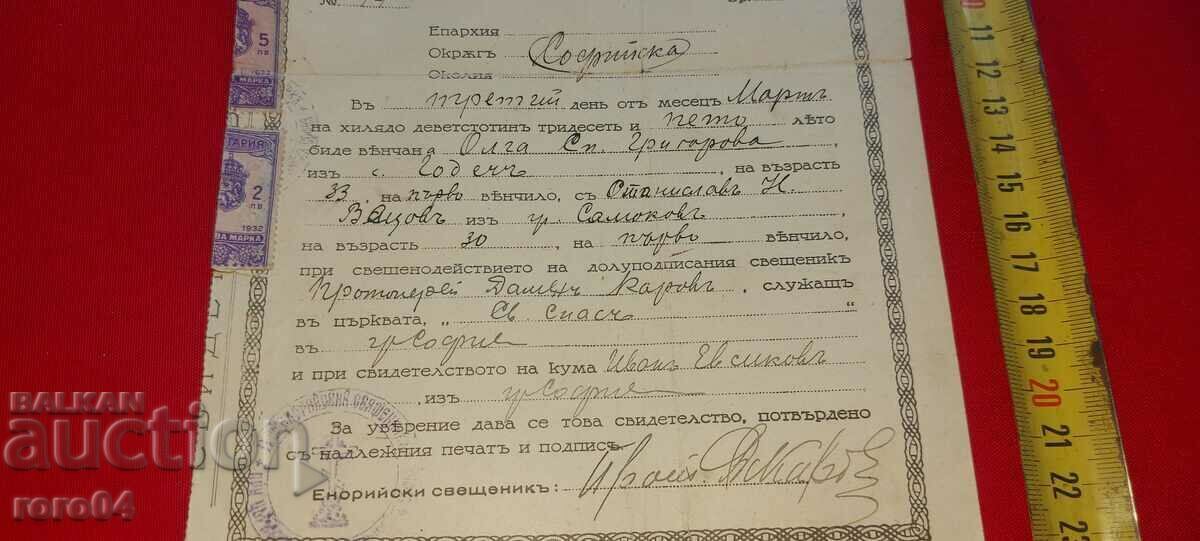 №
Епархия
Окрѫгъ Софийска
Околия
Въ третий день отъ месецъ Мартъ
на хилядо деветстотинъ тридесеть и пето лѣто
биде вѣнчана Олга Сп. Григорова
изъ с. Годечъ, на възрасть
33, на първо вѣнчило, съ Станиславъ Н.
Вацовъ изъ гр. Самоковъ,
на възрасть 30, на първо вѣнчило,
при свещенодействието на долуподписания свещеникъ
Протоиерей Дамянъ Каровъ, служащъ
въ църквата, „Св. Спасъ"
въ гр София
и при свидетелството на кума Иванъ Евсиковъ
, изъ гр София
За увѣрение дава се това свидетелство, потвърдено
съ надлежния печатъ и подпись.
Енорийски свещеникъ:
5
ЛВ.
МАРКА
2
ЛВ
1932
ВА МАРКА
11
12
13
14
15
16
17
18
19
20
21
22
23
BALKAN
AUCTION
roro04